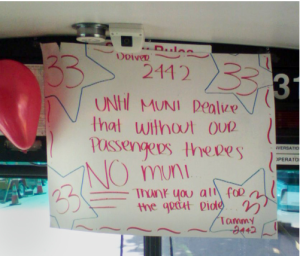 Rules
Driver
2442
33
33
UNtil MUNI Realize
that without OUR
Passengers theres
NO muni
33
Thank you all for
the great Ride
33
Tammy
2442
31
OPERATOR